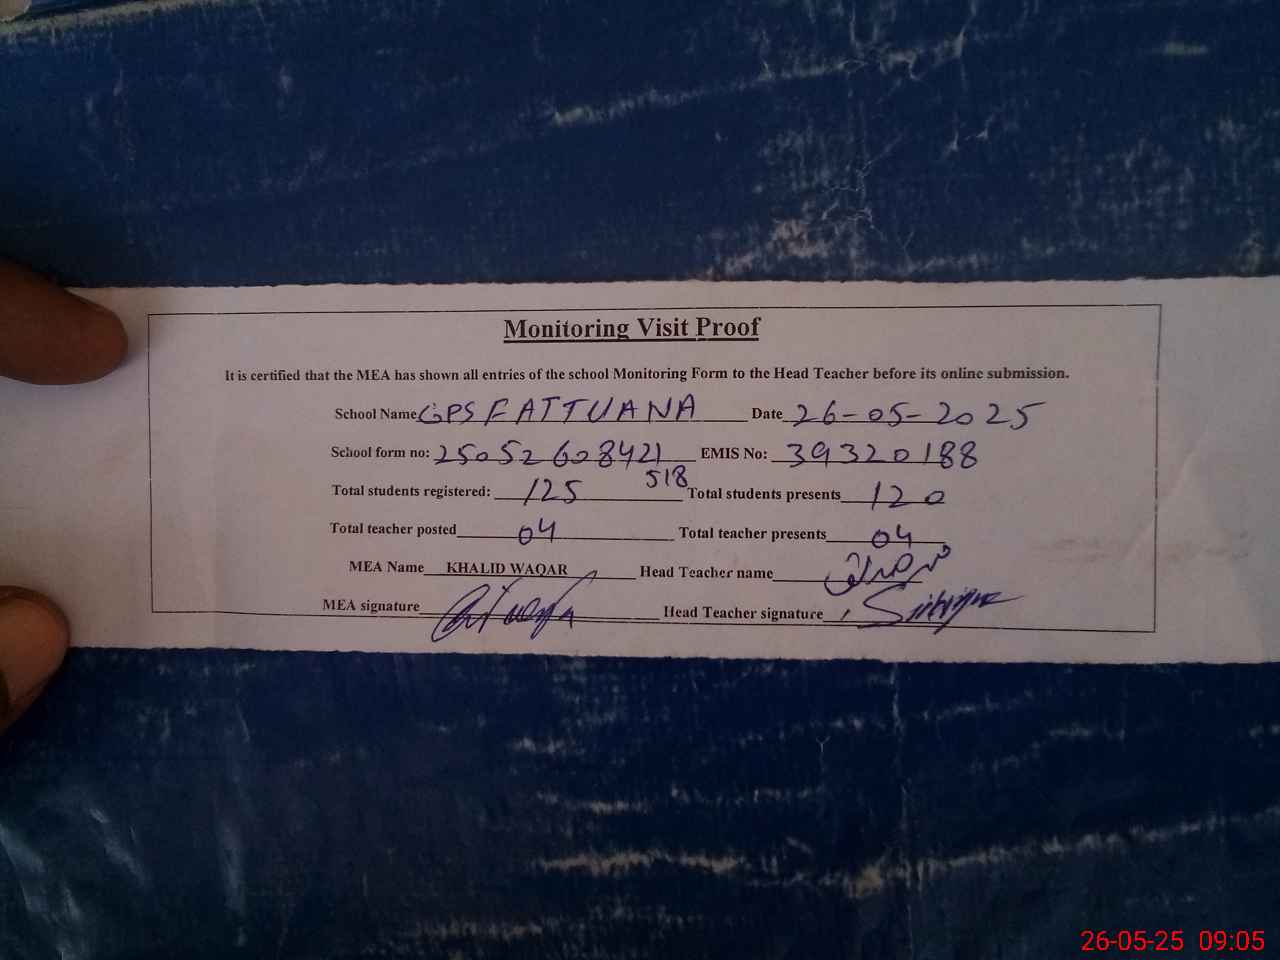 Monitoring Visit Proof
It is certified that the MEA has shown all entries of the school Monitoring Form to the Head Teacher before its online submission.
School Name GPS FATTUANA Date 26-05-2025
School form no: 25052608421 EMIS No: 39320188
518
Total students registered: 125 Total students presents 120
Total teacher posted 04 Total teacher presents 04
MEA Name KHALID WAQAR Head Teacher name
MEA signature Head Teacher signature
26-05-25 09:05